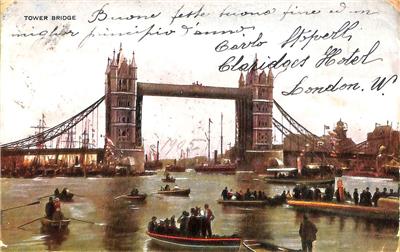 TOWER BRIDGE
Buone feste buona fine ed un
miglior principio d'anno.
Carlo
Claridges Hotel
London. W.